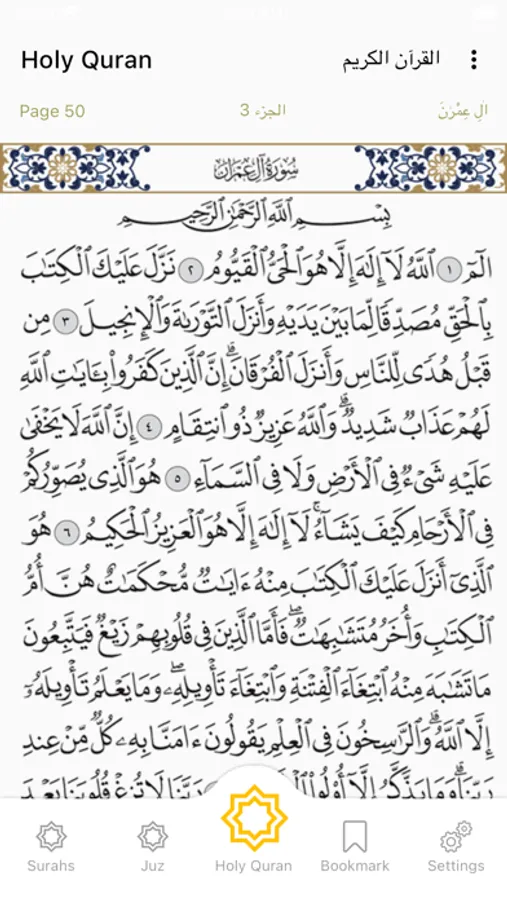 Holy Quran
القرآن الكريم
Page 50
الجزء 3
اٰلِ عِمْرٰنَ
سُورَةُ آلِ عِمْرَانَ
بِسْمِ ٱللَّهِ ٱلرَّحْمَٰنِ ٱلرَّحِيمِ
الٓمٓ ١ ٱللَّهُ لَآ إِلَٰهَ إِلَّا هُوَ ٱلْحَىُّ ٱلْقَيُّومُ ٢ نَزَّلَ عَلَيْكَ ٱلْكِتَٰبَ
بِٱلْحَقِّ مُصَدِّقًا لِّمَا بَيْنَ يَدَيْهِ وَأَنزَلَ ٱلتَّوْرَىٰةَ وَٱلْإِنجِيلَ ٣ مِن
قَبْلُ هُدًى لِّلنَّاسِ وَأَنزَلَ ٱلْفُرْقَانَ ۗ إِنَّ ٱلَّذِينَ كَفَرُوا۟ بِـَٔايَٰتِ ٱللَّهِ
لَهُمْ عَذَابٌ شَدِيدٌ ۗ وَٱللَّهُ عَزِيزٌ ذُو ٱنتِقَامٍ ٤ إِنَّ ٱللَّهَ لَا يَخْفَىٰ
عَلَيْهِ شَىْءٌ فِى ٱلْأَرْضِ وَلَا فِى ٱلسَّمَآءِ ٥ هُوَ ٱلَّذِى يُصَوِّرُكُمْ
فِى ٱلْأَرْحَامِ كَيْفَ يَشَآءُ ۚ لَآ إِلَٰهَ إِلَّا هُوَ ٱلْعَزِيزُ ٱلْحَكِيمُ ٦ هُوَ
ٱلَّذِىٓ أَنزَلَ عَلَيْكَ ٱلْكِتَٰبَ مِنْهُ ءَايَٰتٌ مُّحْكَمَٰتٌ هُنَّ أُمُّ
ٱلْكِتَٰبِ وَأُخَرُ مُتَشَٰبِهَٰتٌ ۖ فَأَمَّا ٱلَّذِينَ فِى قُلُوبِهِمْ زَيْغٌ فَيَتَّبِعُونَ
مَا تَشَٰبَهَ مِنْهُ ٱبْتِغَآءَ ٱلْفِتْنَةِ وَٱبْتِغَآءَ تَأْوِيلِهِۦ ۗ وَمَا يَعْلَمُ تَأْوِيلَهُۥٓ
إِلَّا ٱللَّهُ ۗ وَٱلرَّٰسِخُونَ فِى ٱلْعِلْمِ يَقُولُونَ ءَامَنَّا بِهِۦ كُلٌّ مِّنْ عِندِ
رَبِّنَا ۗ وَمَا يَذَّكَّرُ إِلَّآ أُو۟لُوا۟ رَبَّنَا لَا تُزِغْ قُلُوبَنَا بَعْدَ
Surahs
Juz
Holy Quran
Bookmark
Settings